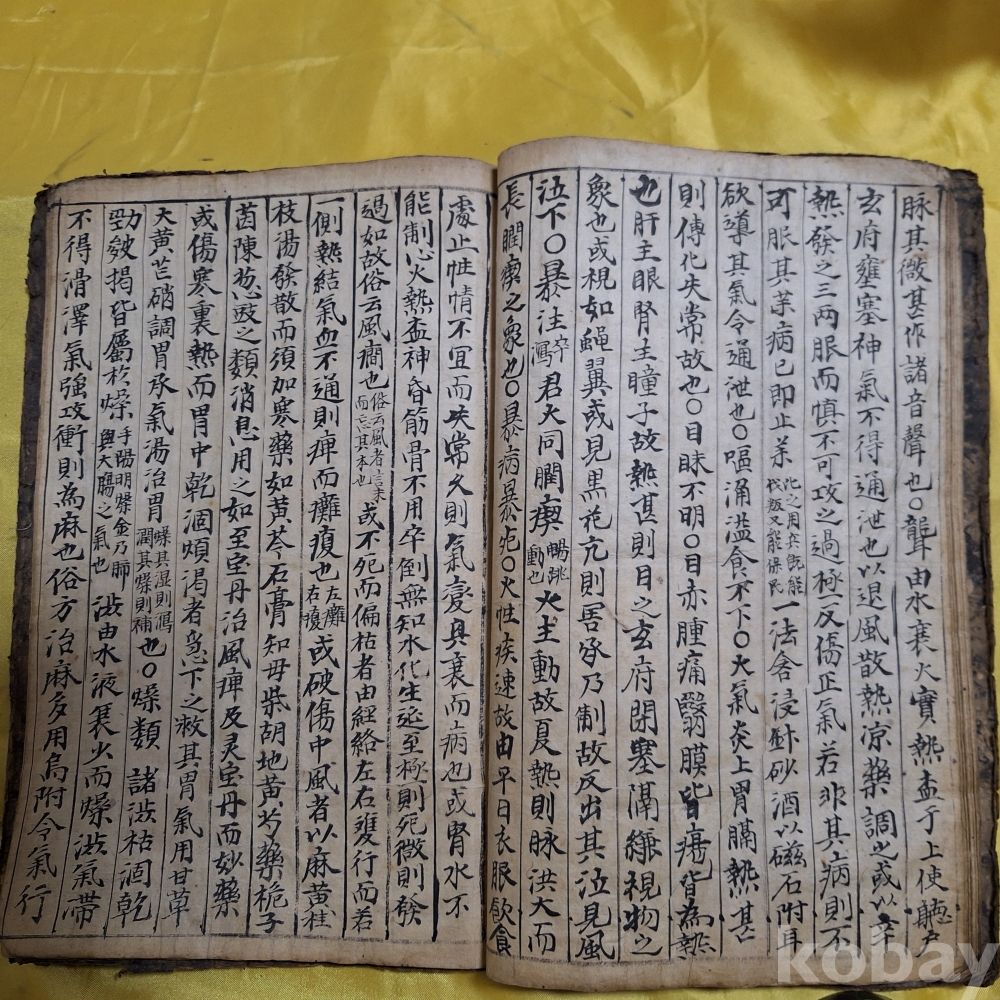 脉其微甚作諸音聲也○聾由水衰火實熱盃于上使聽户
玄府壅塞神氣不得通泄也以退風散熱凉藥調之或以辛
熱發之三两服而慎不可攻之過極反傷正氣若非其病則不
可服其茉病已即止茶此之用兵旣能伐叛又能保民一法含浸針砂酒以磁石附耳
欲導其氣令通泄也○嘔涌溢食不下○火氣炎上胃膈熱甚
則傳化失常故也○目昧不明○目赤腫痛翳膜皆瘍皆為熱
也肝主眼腎主瞳子故熱甚則目之玄府閉塞滆縑視物之
象也或視如蠅翼或見黒花亢則害承乃制故反出其泣見風
泣下○暴注卒瀉君火同瞤瘈暢跳動也火主動故夏熱則脉洪大而
長瞤瘈之象也○暴病暴死○火性疾速故由平日衣服飲食
處止性情不宜而失常久則氣變興衰而病也或腎水不
能制心火熱盃神昏筋骨不用卒倒無知水化生盗至極則死微則發
過如故俗云風癎也俗云風者言末而忘其本也或不死而偏枯者由経絡左右壅行而若
一側熱結氣血不通則痺而癱瘓也左癱右瘓或破傷中風者以麻黄桂
枝湯發散而須加寒藥如黄芩石膏知母柴胡地黄芍藥梔子
茵陳葱豉之類消息用之如至宝丹治風痺及灵宝丹而妙藥
或傷寒裏熱而胃中乾涸煩渴者急下之救其胃氣用甘草
大黄芒硝調胃承氣湯治胃燥其湿則瀉潤其燥則補也○燥類 諸澁枯涸乾
勁皴揭皆屬於燥手陽明燥金乃肺與大腸之氣也 澁由水液衰少而燥澁氣帶
不得滑澤氣強攻衝則為麻也俗方治麻多用烏附令氣行